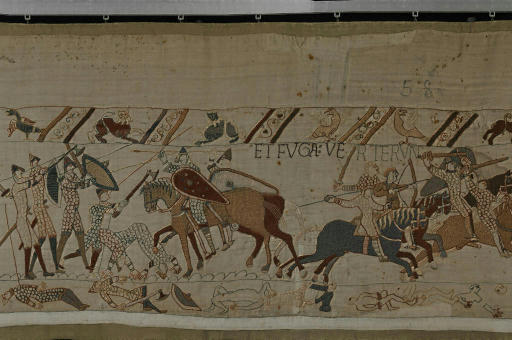 58
ET FVGA VERTERVN